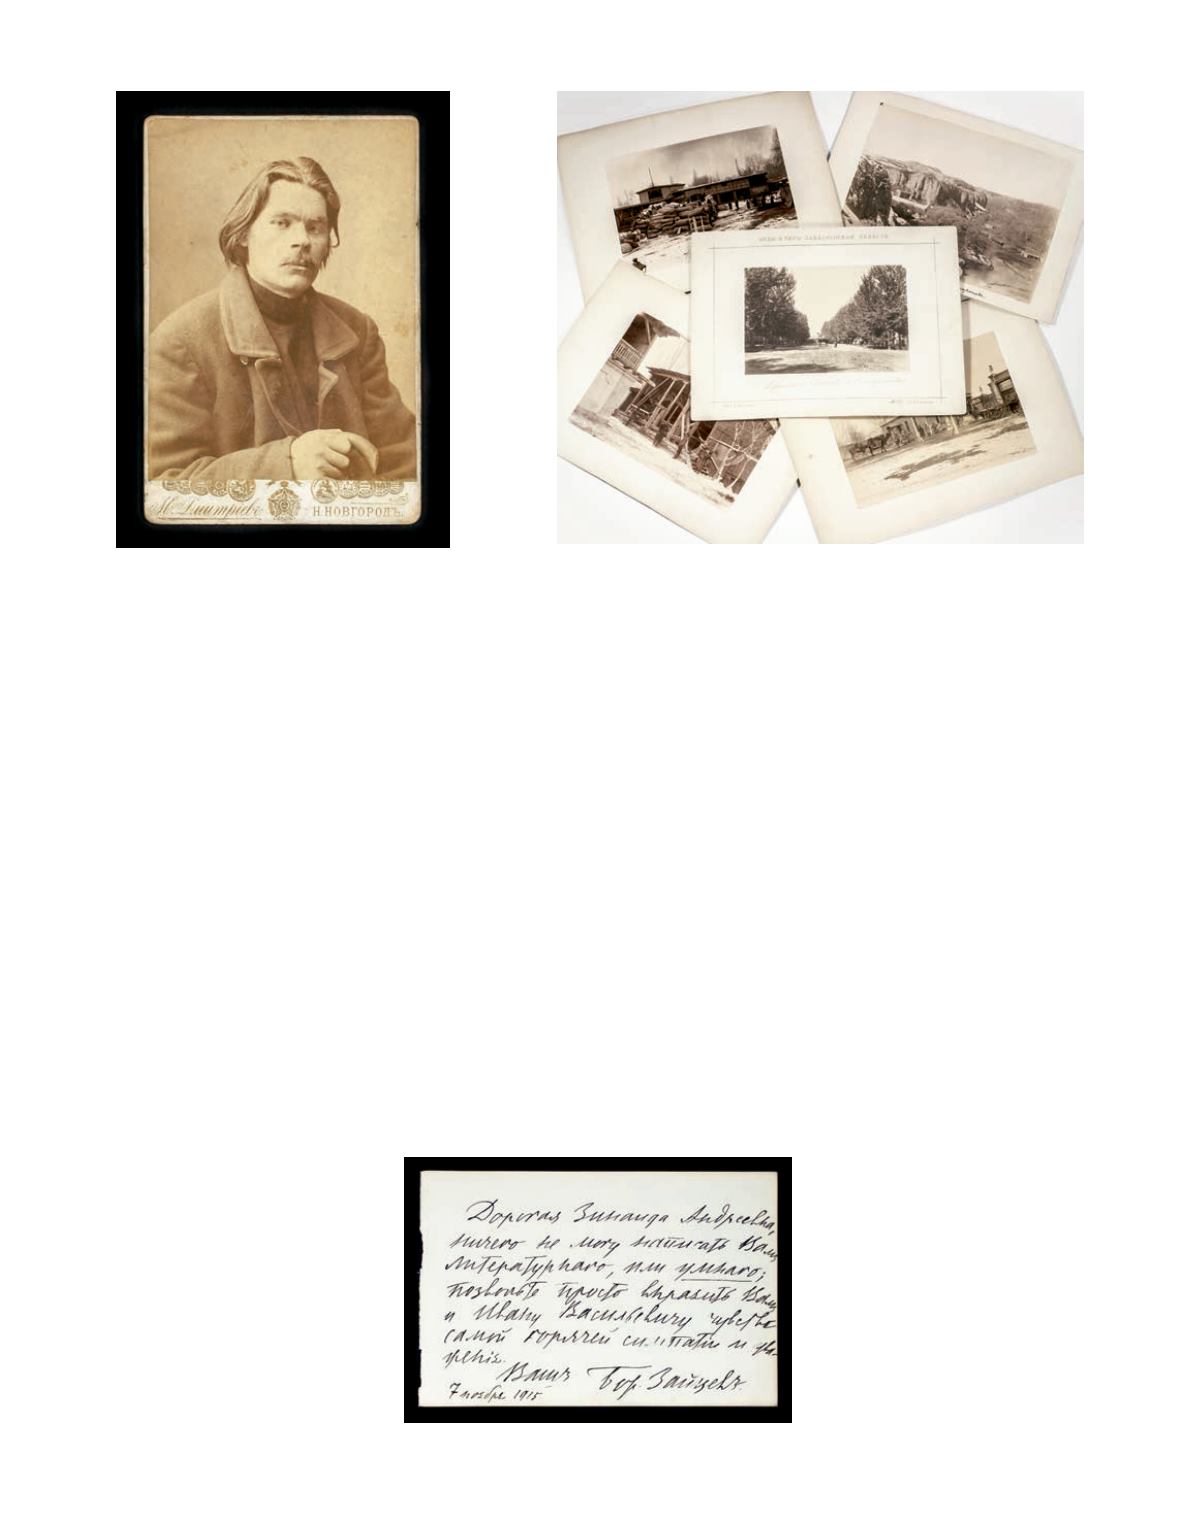 М. Дмитриевъ Н.НОВГОРОДЪ.
ВИДЫ И ТИПЫ ЗАКАСПІЙСКОЙ ОБЛАСТИ
Дорогая Зинаида Андреевна,
ничего не могу написать Вамъ
литературнаго, или умнаго;
позвольте просто выразить Вамъ
и Ивану Васильевичу чувства
самой горячей симпатіи и ува-
женія.
Вашъ Бор. Зайцевъ.
7 ноября 1915